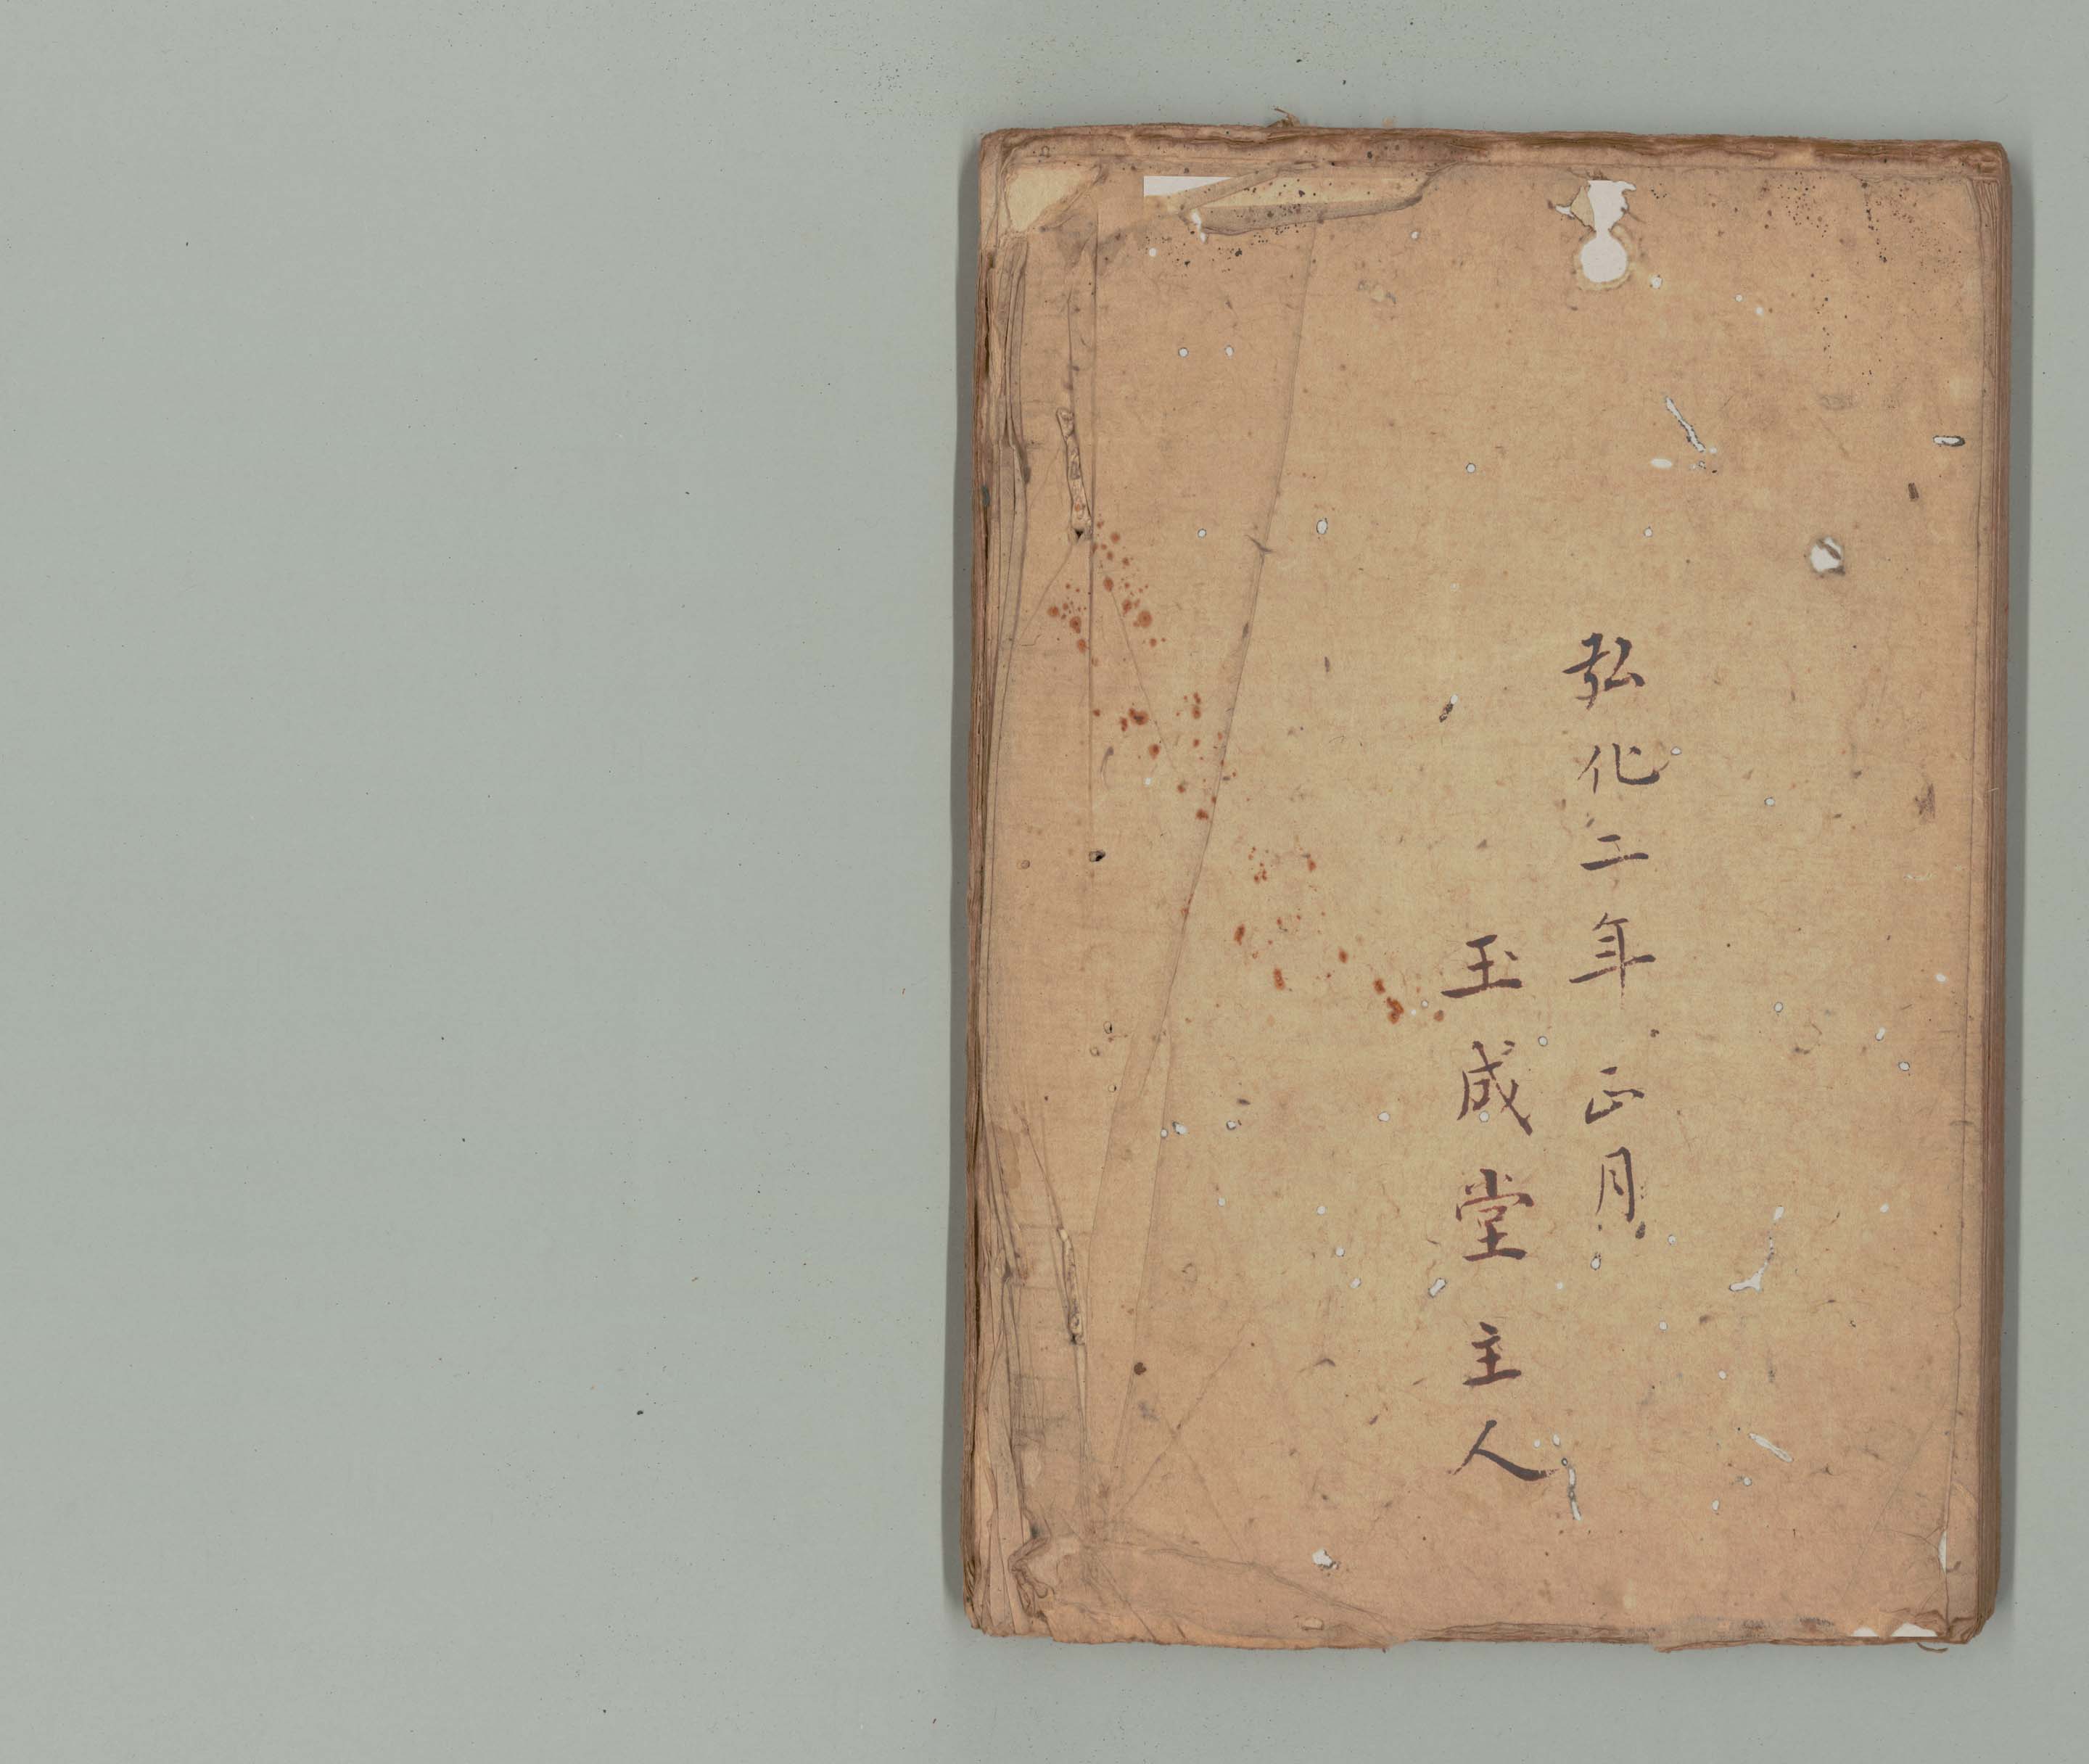 弘化二年正月
玉成堂主人